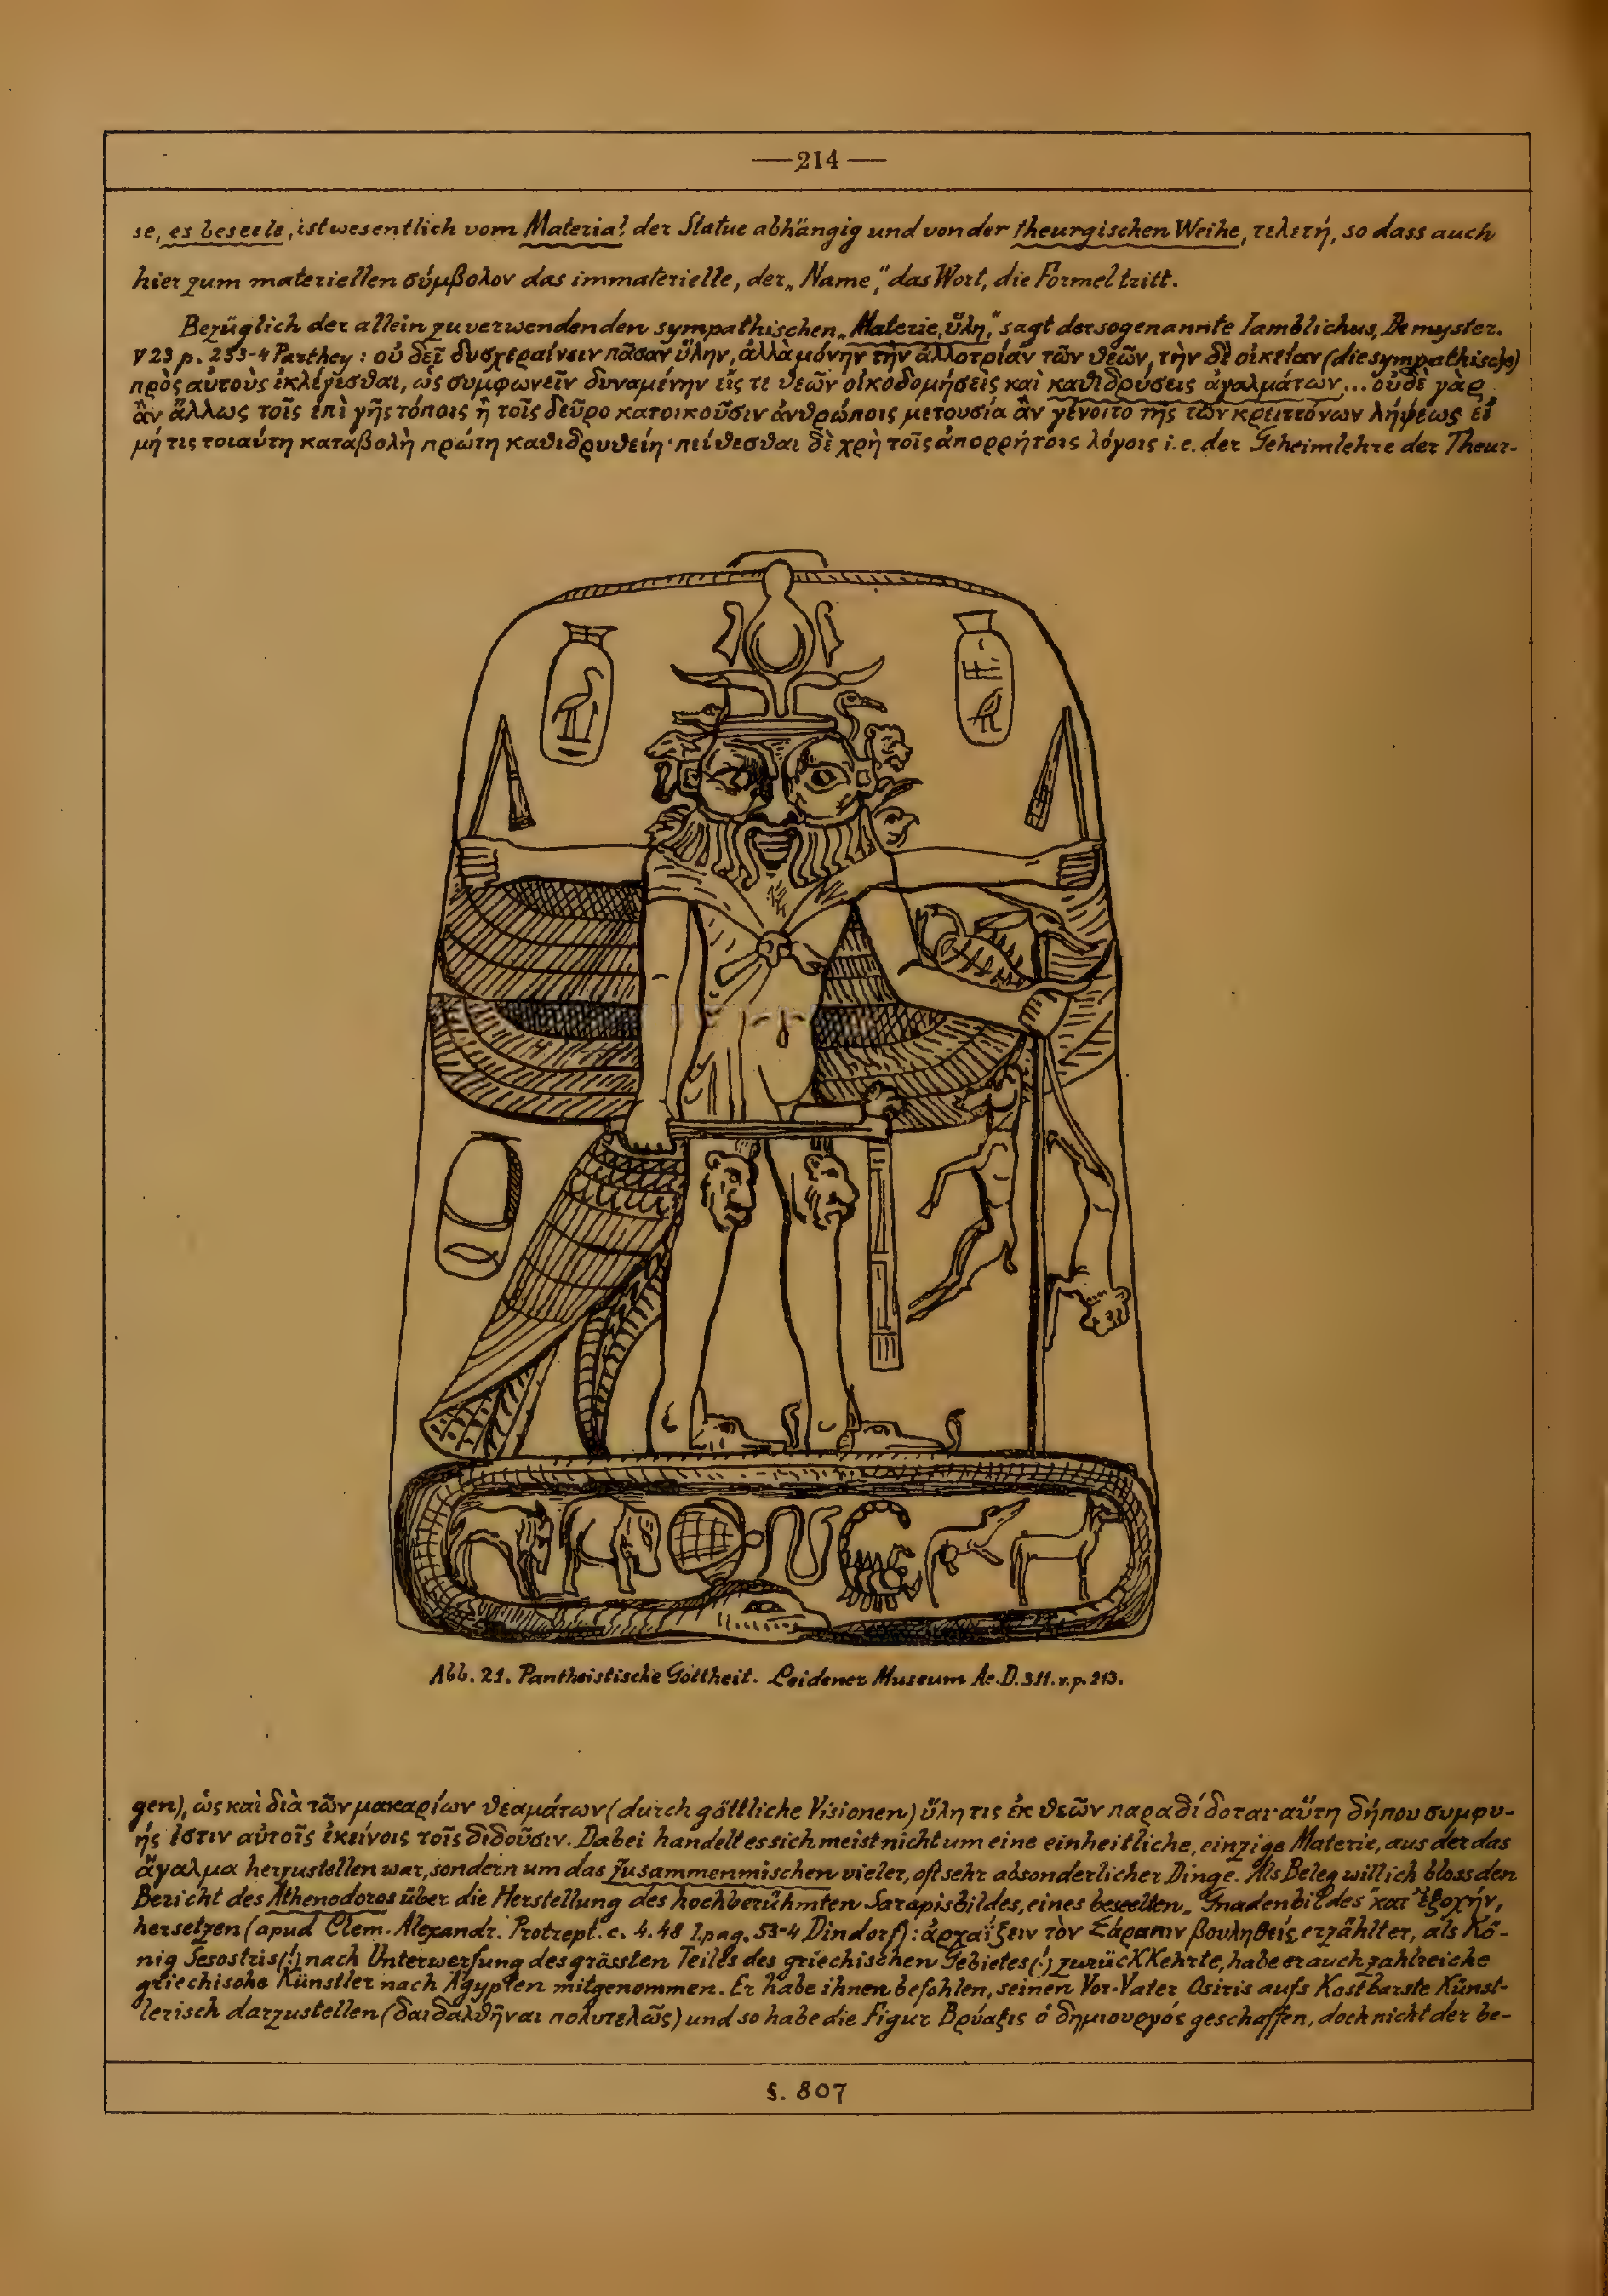 —214—
se, es beseele, ist wesentlich vom Material der Statue abhängig und von der theurgischen Weihe, τελετή, so dass auch
hier zum materiellen σύμβολον das immaterielle, der „Name“, das Wort, die Formel tritt.
Bezüglich der allein zu verwendenden sympathischen „Materie, ὕλη,“ sagt der sogenannte Iamblichus, De myster.
V 23 p. 233-4 Parthey: οὐ δεῖ δυσχεραίνειν πᾶσαν ὕλην, ἀλλὰ μόνην τὴν ἀλλοτρίαν τῶν θεῶν, τὴν δὲ οἰκείαν (die sympathische)
πρὸς αὐτοὺς ἐκλέγεσθαι, ὡς συμφωνεῖν δυναμένην εἴς τε θεῶν οἰκοδομήσεις καὶ καθιδρύσεις ἀγαλμάτων... οὐδὲ γὰρ
ἂν ἄλλως τοῖς ἐπὶ γῆς τόποις ἢ τοῖς δεῦρο κατοικοῦσιν ἀνθρώποις μετουσία ἂν γένοιτο τῆς τῶν κρειττόνων λήψεως εἰ
μή τις τοιαύτη καταβολὴ πρώτη καθιδρυθείη· πείθεσθαι δὲ χρὴ τοῖς ἀπορρήτοις λόγοις i.e. der Geheimlehre der Theur-
Abb. 21. Pantheistische Gottheit. Leidener Museum Ae. D. 311. v. p. 213.
gen), ὡς καὶ διὰ τῶν μακαρίων θεαμάτων (durch göttliche Visionen) ὕλη τις ἐκ θεῶν παραδίδοται αὕτη δήπου συμφυ-
ής ἐστιν αὐτοῖς ἐκείνοις τοῖς διδοῦσιν. Dabei handelt es sich meist nicht um eine einheitliche, einzige Materie, aus der das
ἄγαλμα herzustellen war, sondern um das Zusammenmischen vieler, oft sehr absonderlicher Dinge. Als Beleg will ich bloss den
Bericht des Athenodoros über die Herstellung des hochberühmten Sarapisbildes, eines beseelten „Gnadenbildes κατ' ἐξοχήν,
hersetzen (apud Clem. Alexandr. Protrept. c. 4. 48 I. pag. 53-4 Dindorf): ἀρχαΐζειν τὸν Σάραπιν βουληθείς, erzählt er, als Kö-
nig Sesostris (!) nach Unterwerfung des grössten Teiles des griechischen Gebietes (!) zurückkehrte, habe er auch zahlreiche
griechische Künstler nach Ägypten mitgenommen. Er habe ihnen befohlen, seinen Vor-Vater Osiris aufs Kostbarste künst-
lerisch darzustellen (δαιδαλθῆναι πολυτελῶς) und so habe die Figur Βρύαξις ὁ δημιουργός geschaffen, doch nicht der be-
§. 807